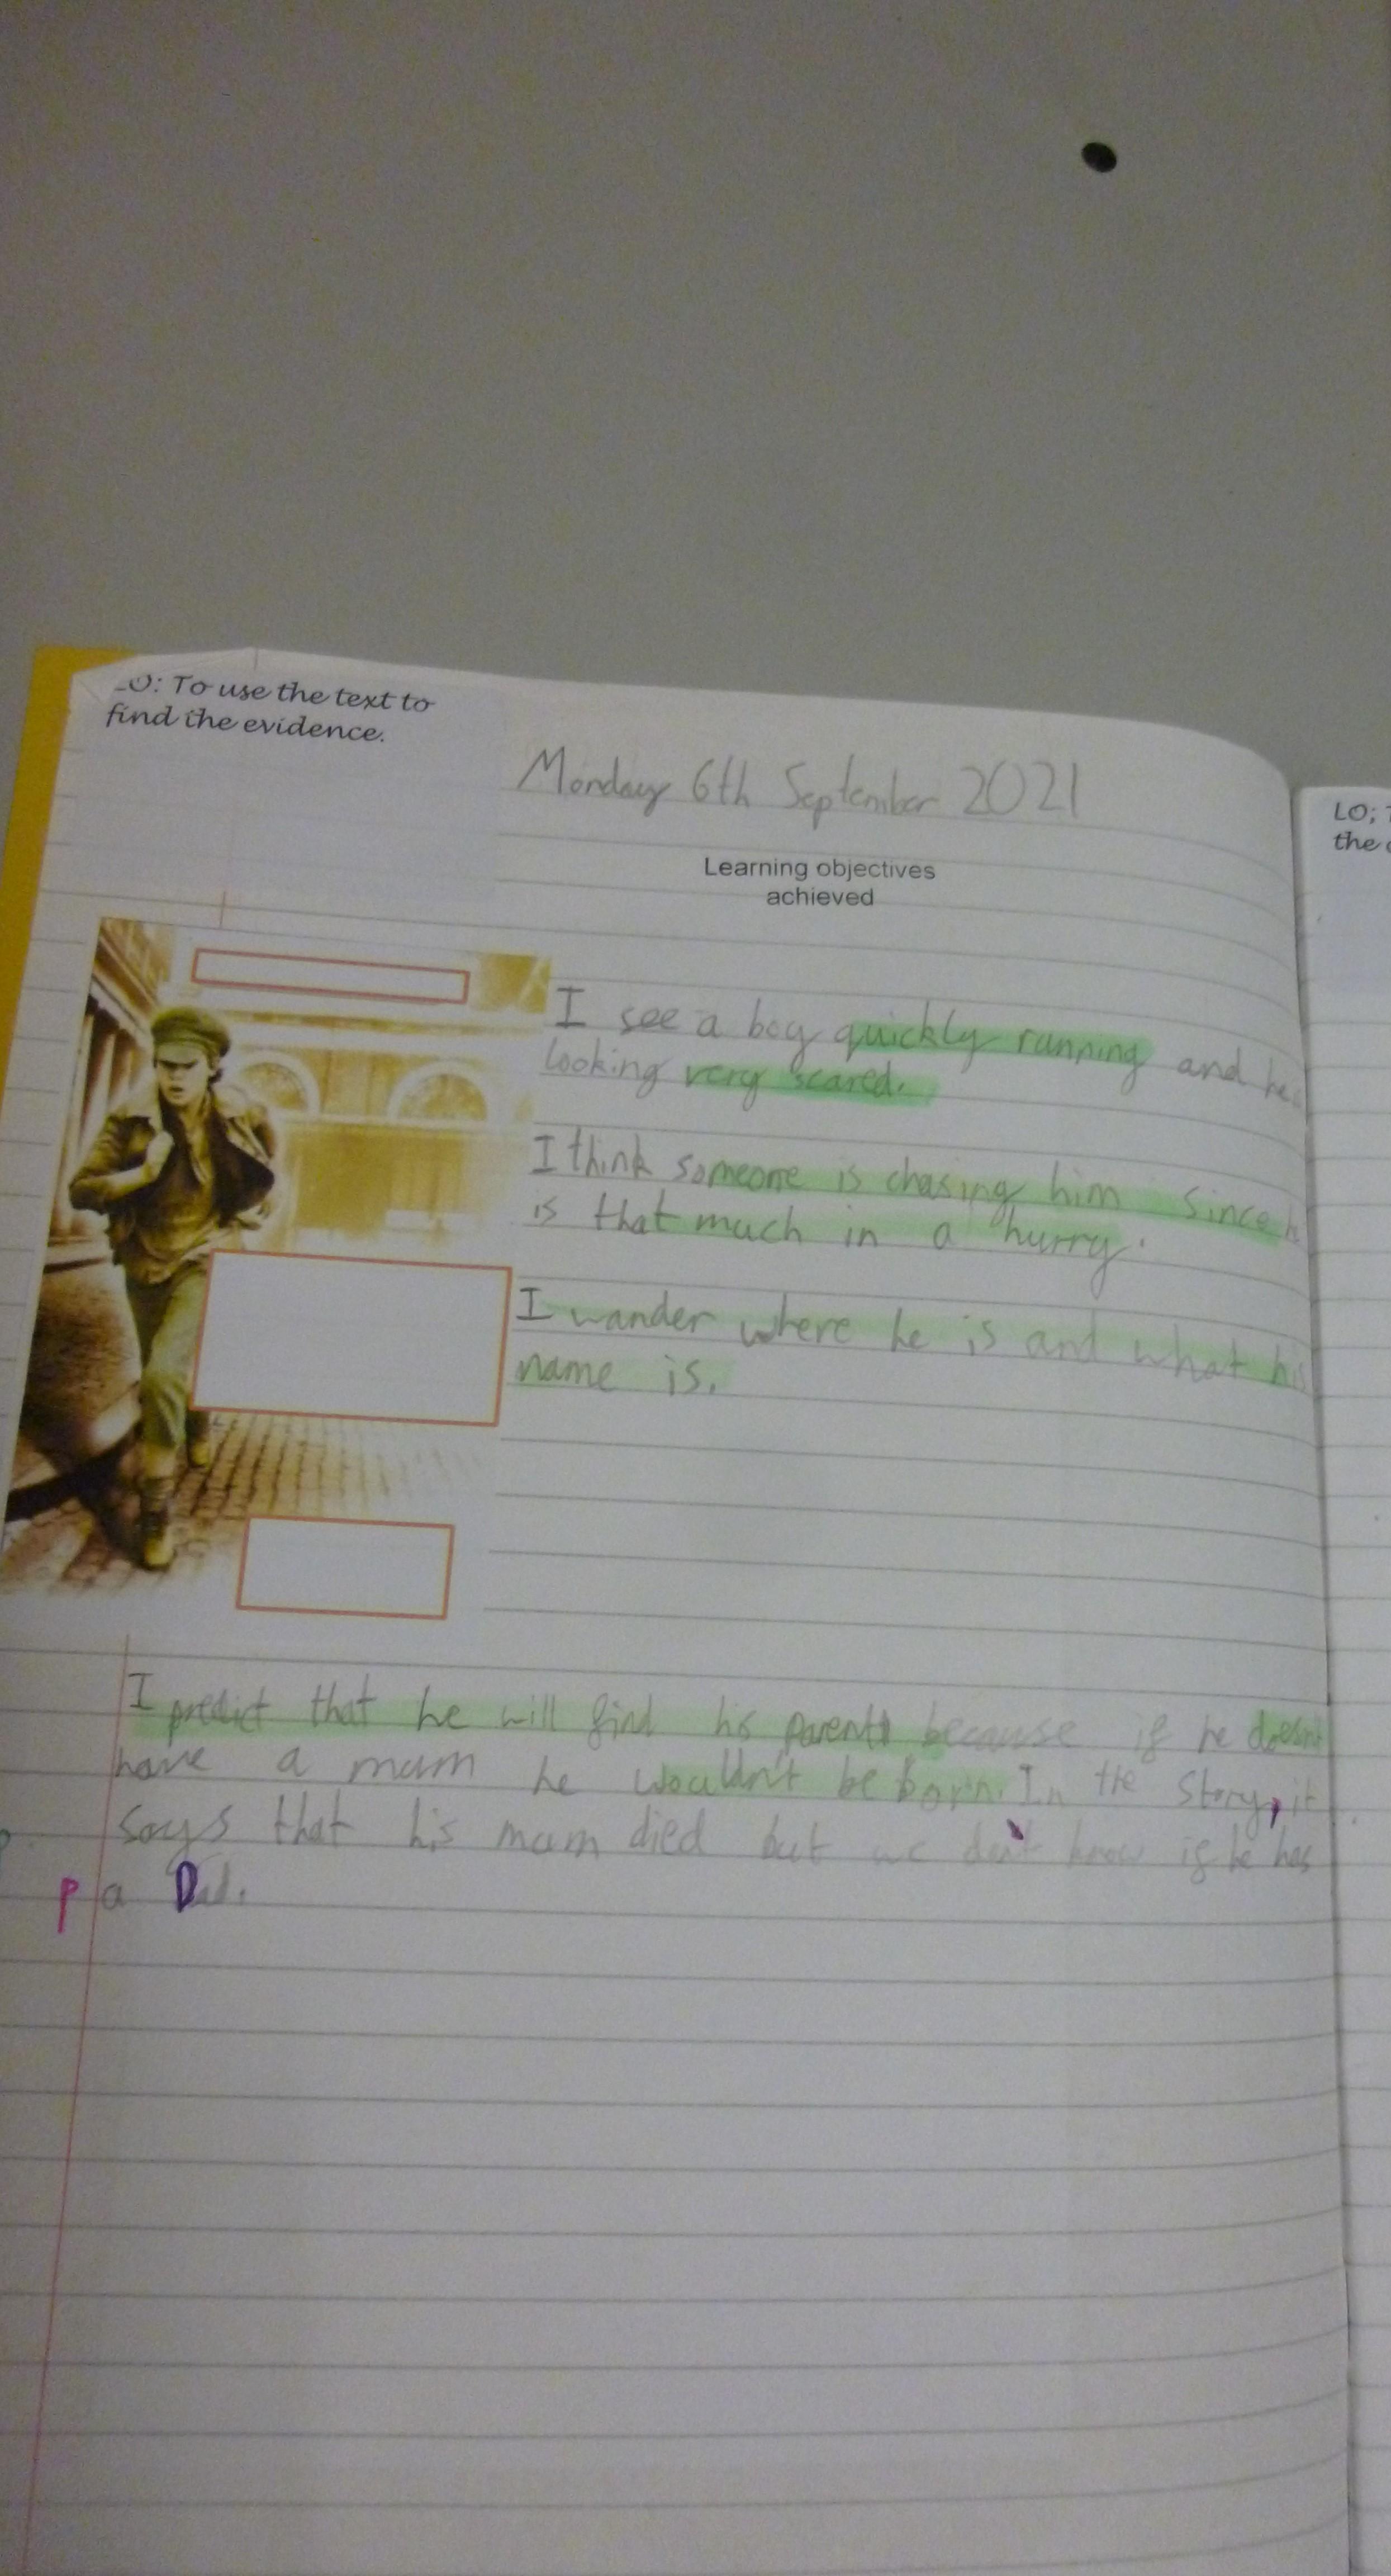 LO: To use the text to
find the evidence.
Monday 6th September 2021
Learning objectives
achieved
I see a boy quickly running and he
looking very scared.
I think someone is chasing him since
is that much in a hurry.
I wander where he is and what his
name is.
I predict that he will find his parents because if he doesn't
have a mum he wouldn't be born. In the story, it
says that his mum died but we don't know if he has
p a Dad.
LO;
the